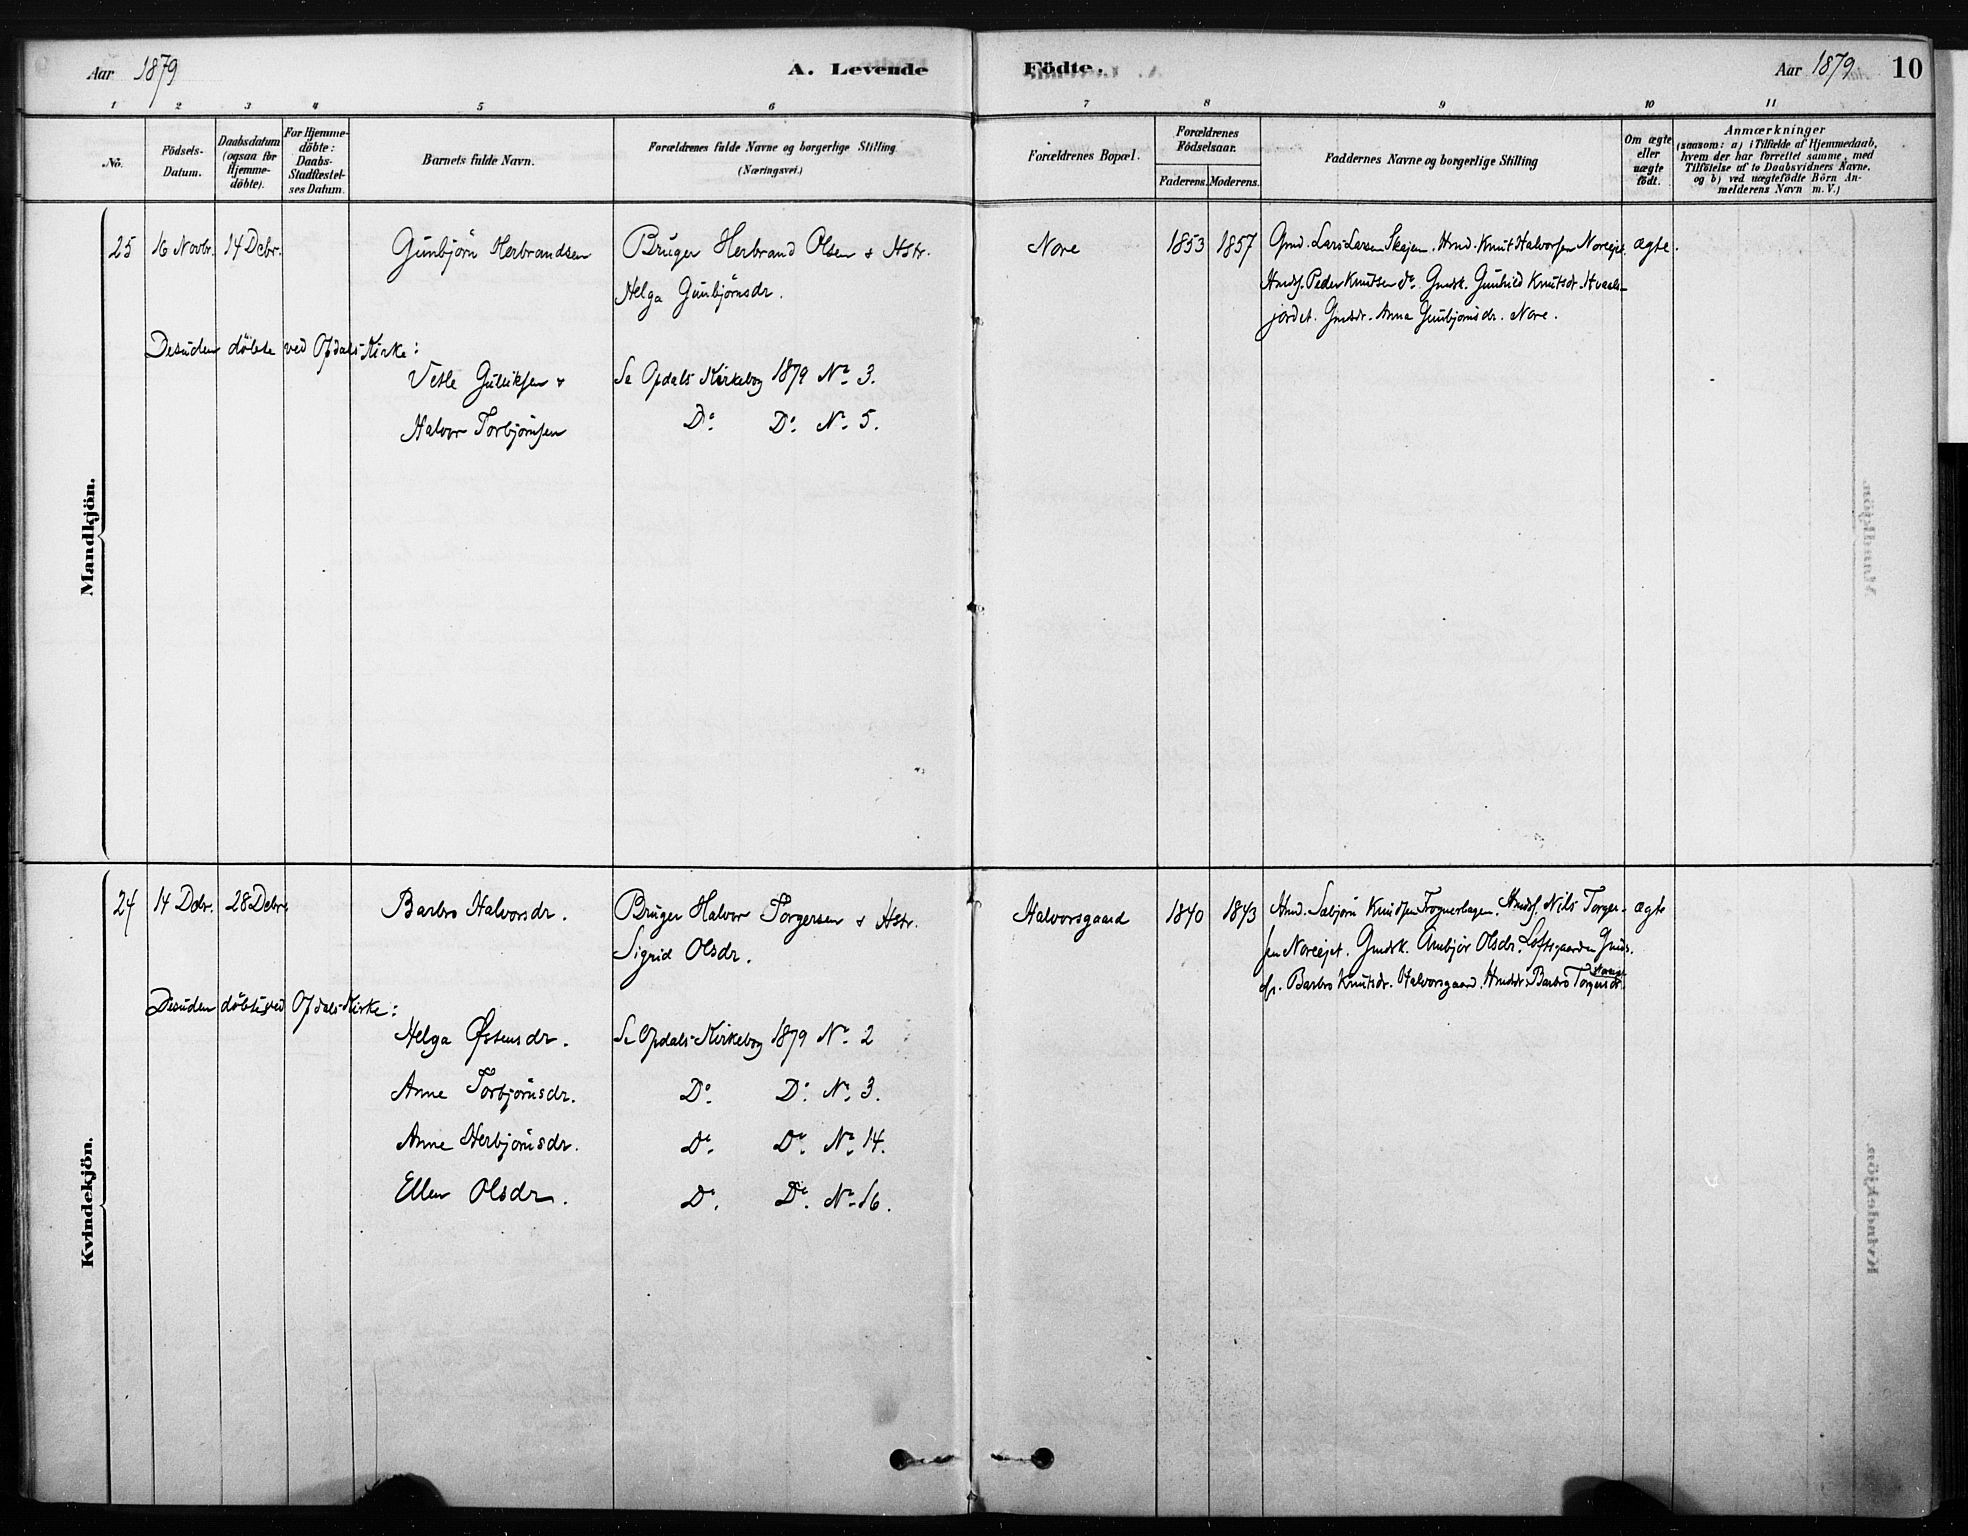 Aar 1879 A. Levende Födte. Aar 1879 10
1 2 3 4 5 6 7 8 9 10 11
No. Födsels-Datum. Daabsdatum (ogsaa for Hjemme-döbte). For Hjemme-döbte: Daabs-Stadfæstelses Datum. Barnets fulde Navn. Forældrenes fulde Navne og borgerlige Stilling (Næringsvei.) Forældrenes Bopæl. Forældrenes Födselsaar. Faderens. Moderens. Faddernes Navne og borgerlige Stilling Om ægte eller uægte födt. Anmærkninger (saasom: a) i Tilfælde af Hjemmedaab, hvem der har forrettet samme, med Tilföielse af to Daabsvidners Navne, og b) ved uægtefödte Börn Anmelderens Navn m. V.)
Mandkjön.
25 16 Novbr. 14 Debr. Gunbjörn Herbrandsen Brüger Herbrand Olsen & Hstr. Nore 1853 1857 Gmd. Lars Larsen Skajem. Hmd. Knut Halvorsen Noreejet. ægte.
Helga Gunbjörnsdr. Hmds. Peder Knutsen do. Gmdk. Gunhild Knutsdr. Hvaals-
jordet. Gmdsdr. Anna Gunbjörnsdr. Nore.
Desuden döbte ved Opdals-Kirke:
Vetle Gulliksen & Se Opdals Kirkebog 1879 No. 3.
Halvor Torbjörnsen Do. Do. No. 5.
Kvindekjön.
24 14 Debr. 28 Debr. Barbro Halvorsdr. Brüger Halvor Torgersen & Hstr. Halvorsgaard 1840 1843 Hmd. Sæbjörn Knudsen Frognerhagen. Hmds. Nils Torger- ægte
Sigrid Olsdr. sen Noreejet. Gmdsk. Ambjör Olsdr. Loftsgaarden Gmds.
Barbro Knutsdr. Halvorsgaard. Hmdsdr. Barbro Torgersdr.
Desuden döbte ved Opdals-Kirke:
Helga Østensdr. Se Opdals-Kirkebog 1879 No. 2
Anne Torbjörnsdr. Do. Do. No. 3.
Anne Herbjörnsdr. Do. Do. No. 14.
Ellen Olsdr. Do. Do. No. 16.